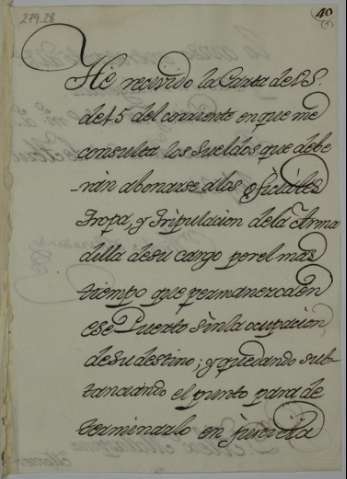 279.28
40
He recivido la Carta de V.S.
de 15 del corriente en que me
consulta los sueldos que debe
-rán abonarse a los Oficiales
Tropa, y Tripulacion de la Arma
dilla de su cargo por el mas
tiempo que permanezca en
ese Puerto sin la ocupacion
de su destino; y quedando subs
tanciando el punto para de
terminarlo en justicia